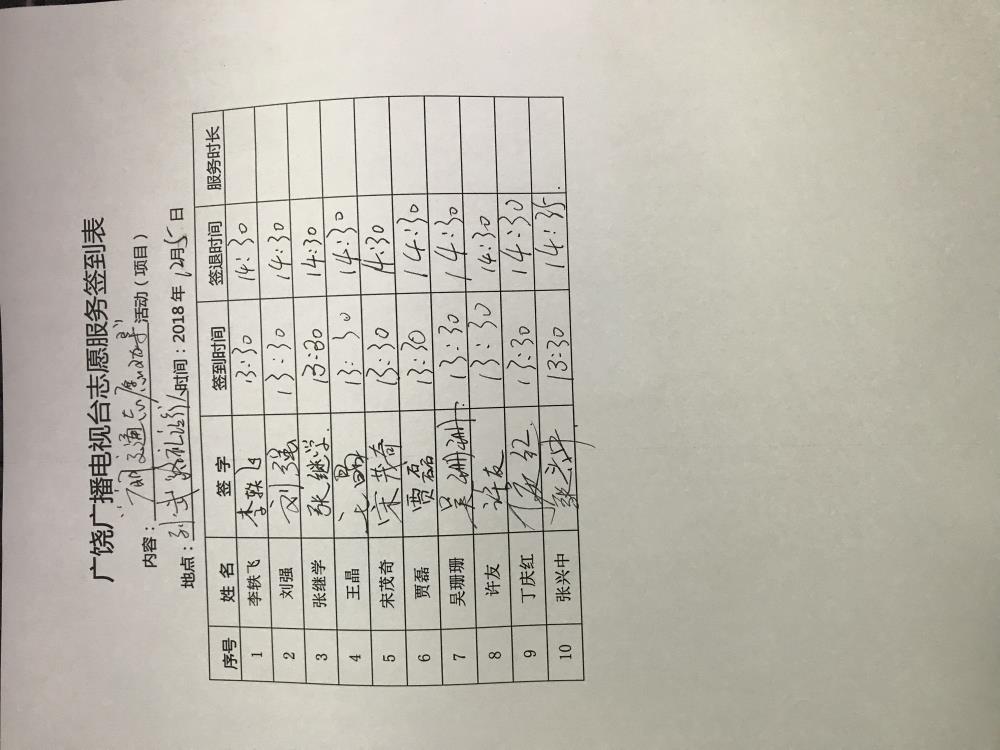 广饶广播电视台志愿服务签到表
内容：“文明交通志愿劝导”活动（项目）
地点：孙武 时间：2018年12月5日
序号 姓名 签字 签到时间 签退时间 服务时长
1 李轶飞 李轶飞 13:30 14:30
2 刘强 刘强 13:30 14:30
3 张继学 张继学 13:30 14:30
4 王晶 王晶 13:30 14:30
5 宋茂奇 宋茂奇 13:30 14:30
6 贾磊 贾磊 13:30 14:30
7 吴珊珊 吴珊珊 13:30 14:30
8 许友 许友 13:30 14:30
9 丁庆红 13:30 14:30
10 张兴中 张兴中 13:30 14:35